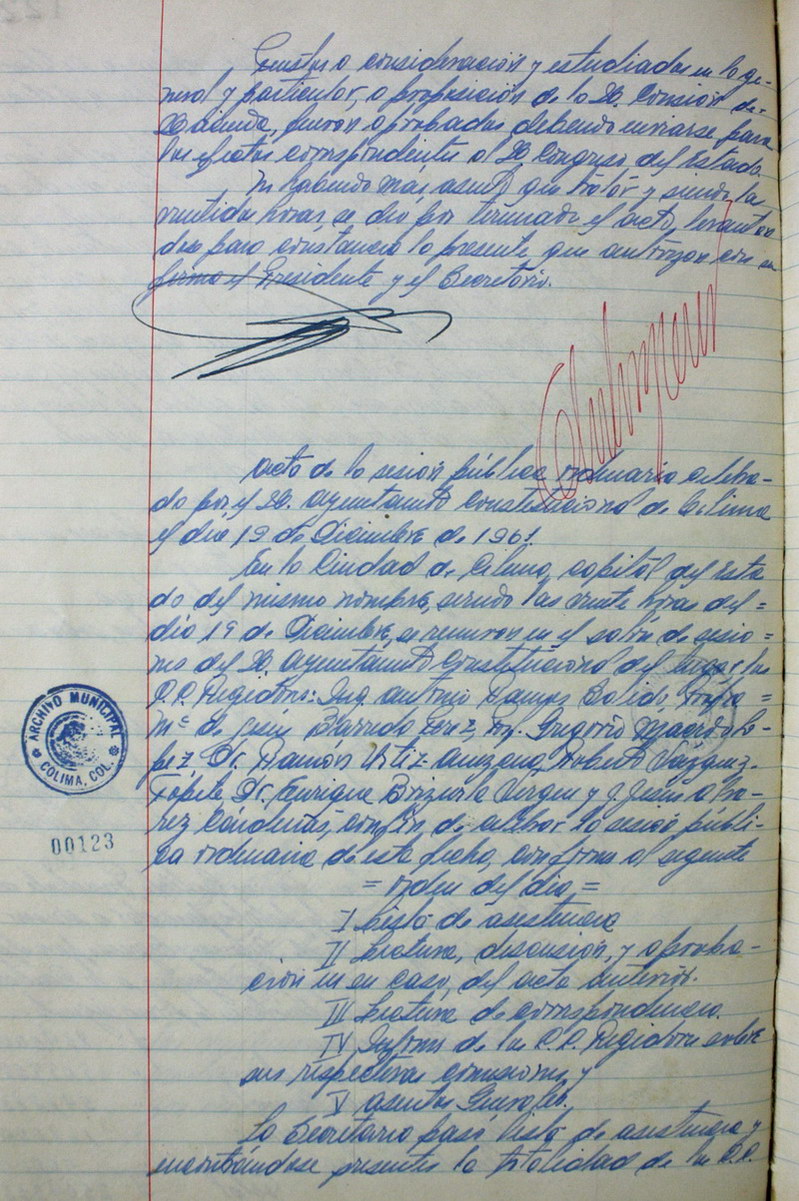 Puestas a consideración y estudiadas en lo ge-
neral y particular, a proposición de la H. Comisión de-
Hacienda, fueron aprobadas debiendo enviarse para
los efectos correspondientes al H. Congreso del Estado.
No habiendo más asunto que tratar y siendo las
veintidos horas, se dio por terminado el acto, levantan
dose para constancia la presente que autorizan con su
firma el Presidente y el Secretario.
Acta de la sesión pública ordinaria celebra-
da por el H. Ayuntamiento Constitucional de Colima
el día 19 de Diciembre de 1961.
En la Ciudad de Colima, capital del Esta
do del mismo nombre, siendo las veinte horas del=
día 19 de Diciembre, se reunieron en el salón de sesio=
nes del H. Ayuntamiento Constitucional del lugar los
C.C. Regidores: Ing. Antonio
Mª de Jesús Pérez, Gregorio Macedo Ló-
pez, Dr. Ramón Ortiz Roberto Vázquez-
Dr. Enrique Brizuela Virgen y J. Jesús Alva-
rez Cárdenas, con fin de celebrar la sesión públi-
ca ordinaria de esta fecha, conforme al siguiente
= orden del día, =
I Lista de asistencia
II Lectura, discusión, y aproba-
ción en su caso, del acta anterior.
III Lectura de correspondencia.
IV Informes de los C.C. Regidores sobre
sus respectivas comisiones y
V Asuntos Generales.
La Secretario pasó lista de asistencia y
encontrándose presentes la totalidad de los C.C.
ARCHIVO MUNICIPAL
COLIMA, COL.
00123